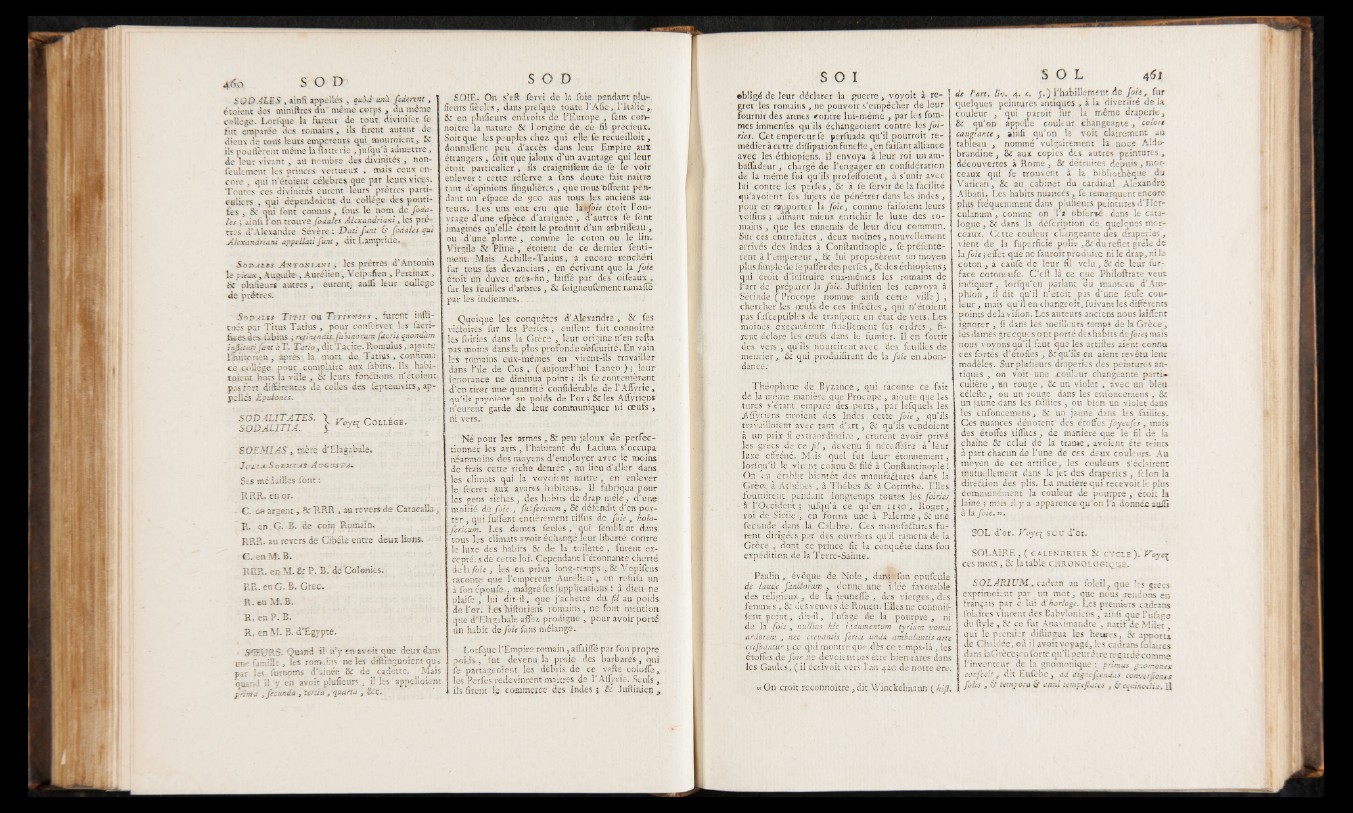 460 S O D
SODALES, ainsi appellés, quòd unà sederent,
étoient des ministres du même corps, du même
collège. Lorsque la fureur de tout diviniser se
fut emparée des romains, ils firent autant de
dieux de tous leurs empereurs qui mouroient, &
ils poussèrent même la flatterie, jusqu'à admettre,
de leur vivant, au nombre des divinités, non-
seulement les princes vertueux, mais ceux en-
core, qui n'étoient célèbres que par leurs vices.
Toutes ces divinités eurent leurs prêtres parti-
culiers, qui dépendoient du collège des ponti-
fes, & qui sont connus, sous le nom de soda-
les; ainsi l'on trouve sodales Alexandriani, les prê-
tres d'Alexandre Sévère: Dati sunt & sodales qui
Alexandriani appellati sunt, dit Lampride.
SODALES ANTONIANI, les prêtres d'Antonin
le pieux, Auguste, Aurélien, Vespasien, Pertinax,
& plusieurs autres, eurent aussi leur collège
de prêtres.
SODALES TITII ou TITIENSES, furent insti-
tués par Titus Tatius, pour conserver les sacri-
fices des sabins; retinendis sabinorum sacris quondam
instituti sunt à T. Tatio, dit Tacite. Romulus, ajoute
l'historien, après la mort de Tatius, confirma
ce collège pour complaire aux sabins. Ils habi-
toient hors la ville, & leurs fonctions n'étoient
pas fort différentes de celles des septemvirs, ap-
pellés Epulones.
SODALITATES. }
SODALITIA. } Voyez COLLÈGE.
SOEMIAS, mère d'Elagabale.
JULIA SOEMIAS AUGUSTA.
Ses médailles sont:
RRR. en or.
C. en argent, & RRR, au revers de Caracalla,
R. en G. B. de coin Romain.
RRR. au revers de Cibéle entre deux lions.
C. en M. B.
RRR. en M. & P. B. de Colonies.
RR. en G. B. Grec.
R. en M. B.
R. en P. B.
R. en M. B. d'Egypte.
SŒURS. Quand il n'y en avoit que deux dans
une famille, les romains ne les distinguoient que
par les surnoms d'aînée & de cadette. Mais
quand il y en avoit plusieurs, il les appelloient
prima, secunda, tertia, quarta, &c.
S O D
SOIE. On s'est servi de la soie pendant plu-
sieurs siècles, dans presque toute l'Asie, l'Italie,
& en plusieurs endroits de l'Europe, sans con-
noître la nature & l'origine de ce fil précieux.
Soit que les peuples chez qui elle se recueilloit,
donnassent peu d'accès dans leur Empire aux
étrangers, soit que jaloux d'un avantage qui leur
étoit particulier, ils craignissent de se le voir
enlever: cette réserve a sans doute fait naître
tant d'opinions singulières, que nous offrent pen-
dant un espace de 900 ans tous les anciens au-
teurs. Les uns ont cru que la soie étoit l'ou-
vrage d'une espèce d'araignée, d'autres se sont
imaginés qu'elle étoit le produit d'un arbrisseau,
ou d'une plante, comme le coton ou le lin.
Virgile & Pline, étoient de ce dernier senti-
ment. Mais Achille-Tatius, a encore renchéri
sur tous ses devanciers, en écrivant que la soie
étoit un duvet très-fin, laissé par des oiseaux,
sur les feuilles d'arbres, & soigneusement ramassé
par les indiennes.
Quoique les conquêtes d'Alexandre, & ses
victoires sur les Perses, eussent fait connoître
les soiries dans la Grèce, leur origine n'en resta
pas moins dans la plus profonde obscurité. En vain
les romains eux-mêmes en virent-ils travailler
dans l'île de Cos, (aujourd'hui Lango); leur
ignorance ne diminua point; ils se contentèrent
d'en tirer une quantité considérable de l'Assyrie,
qu'ils payoient au poids de l'or: & les Assyriens
n'eurent garde de leur communiquer ni œufs,
ni vers.
Né pour les armes, & peu jaloux de perfec-
tionner les arts, l'habitant du Latium s'occupa
néanmoins des moyens d'employer avec le moins
de frais cette riche denrée, au lieu d'aller dans
les climats qui la voyoient naître, en enlever
le secret aux avares habitans. Il fabriqua pour
les gens riches, des habits de drap mêlé, d'une
moitié de soie, subsericum, & défendit d'en por-
ter, qui fussent entièrement tissus de soie, holo-
sericum. Les dames seules, qui semblent dans
tous les climats avoir échangé leur liberté contre
le luxe des habits & de la toilette, furent ex-
ceptées de cette loi. Cependant l'étonnante cherté
de la soie, les en priva long-temps, & Vopiscus
raconte que l'empereur Aurélien, en refusa un
à son épouse, malgré ses supplications: à dieu ne
plaise, lui dit-il, que j'achette du fil au poids
de l'or. Les historiens romains, ne font mention
que d'Elagabale assez prodigue, pour avoir porté
un habit de soie sans mélange.
Lorsque l'Empire romain, affaissé par son propre
poids, fut devenu la proie des barbares, qui
se partageoient les débris de ce vaste colosse,
les Perses redevinrent maîtres de l'Assyrie. Seuls,
ils firent le commerce des Indes; & Justinien,
S O I
obligé de leur déclarer la guerre, voyoit à re-
gret les romains, ne pouvoir s'empêcher de leur
fournir des armes contre lui-même, par les som-
mes immenses qu'ils échangeoient contre les soi-
ries. Cet empereur se persuada qu'il pourroit re-
médier à cette dissipation funeste, en faisant alliance
avec les éthiopiens. Il envoya à leur roi un am-
bassadeur, chargé de l'engager en considération
de la même foi qu'ils professoient, à s'unir avec
lui contre les perses, & à se servir de la facilité
qu'avoient ses sujets de pénétrer dans les indes,
pour en rapporter la soie, comme faisoient leurs
voisins; aimant mieux enrichir le luxe des ro-
mains, que les ennemis de leur dieu commun.
Sur ces entrefaites, deux moines, nouvellement
arrivés des Indes à Constantinople, se présentè-
rent à l'empereur, & lui proposèrent un moyen
plus simple de se passer des perses, & des éthiopiens;
qui étoit d'instruire eux-mêmes les romains de
l'art de préparer la soie. Justinien les renvoya à
Sérinde (Procope nomme ainsi cette ville),
chercher les œufs de ces insectes, qui n'étoient
pas susceptibles de transport en état de vers. Les
moines exécutèrent fidellement ses ordres, fi-
rent éclore les œufs dans le fumier. Il en sortit
des vers, qu'ils nourrirent avec des feuilles de
meurier, & qui produisirent de la soie en abon-
dance.
Théophane de Byzance, qui raconte ce fait
de la même manière que Procope, ajoute que les
turcs s'étant emparé des ports, par lesquels les
Assyriens tiroient des Indes cette soie, qu'ils
travailloient avec tant d'art, & qu'ils vendoient
à un prix si extraordinaire, crurent avoir privé
les grecs de ce fil, devenu si nécessaire à leur
luxe effréné. Mais quel fut leur étonnement,
lorsqu'il le virent connu & filé à Constantinople!
On en établit bientôt des manufactures dans la
Grèce, à Athènes, à Thèbes & à Corinthe. Elles
fournirent pendant longtemps toutes les soiries
à l'Occident; jusqu'à ce qu'en 1130, Roger,
roi de Sicile, en forma une à Palerme, & une
seconde dans la Calabre. Ces manufactures fu-
rent dirigées par des ouvriers qu'il ramena de la
Grèce, dont ce prince fit la conquête dans son
expédition de la Terre-Sainte.
Paulin, évêque de Nole, dans son opuscule
de laude sanctorum, donne une idée favorable
des religieux, de la jeunesse, des vierges, des
femmes, & des veuves de Rouen. Elles ne connois-
sent point, dit-il, l'usage de la pourpre, ni
de la soie, nullus hîc indumentum tyrium vomit
ardorem, nec crepantis serica unda ambulantis arte
crispantur; ce qui montre que dès ce temps-là, les
étoffes de soie ne devoient pas être bien rares dans
les Gaules, (il écrivoit vers l'an 420 de notre ère.
» On croit reconnoître, dit Winckelmann (hist.
S O L 461
de l'art. liv. 4. c. 5.) l'habillement de soie, sur
quelques peintures antiques, à la diversité de la
couleur, qui paroît sur la même draperie,
& qu'on appelle couleur changeante, colore
cangiante, ainsi qu'on le voit clairement au
tableau, nommé vulgairement la noce Aldo-
brandine, & aux copies des autres peintures,
découvertes à Rome, & détruites depuis, mor-
ceaux qui se trouvent à la bibliothèque du
Vatican, & au cabinet du cardinal Alexandre
Albani. Les habits nuancés, se remarquent encore
plus fréquemment dans plusieurs peintures d'Her-
culanum, comme on l'a observé dans le cata-
logue, & dans la description de quelques mor-
ceaux. Cette couleur changeante des draperies,
vient de la superficie polie, & du reflet grêle de
la soie; effet que ne sauroit produire ni le drap, ni le
coton, à cause de leur fil velu, & de leur sur-
face cotoneuse. C'est là ce que Philostrate veut
indiquer, lorsqu'en parlant du manteau d'Am-
phion, il dit qu'il n'étoit pas d'une seule cou-
leur, mais qu'il en changeoit, suivant les différents
points de la vision. Les auteurs anciens nous laissent
ignorer, si dans les meilleurs temps de la Grèce,
les dames grecques ont porté des habits de soie; mais
nous voyons qu'il faut que les artistes aient connu
ces sortes d'étoffes, & qu'ils en aient revêtu leur
modèles. Sur plusieurs draperies des peintures an-
tiques, on voit une couleur changeante parti-
culière, un rouge, & un violet, avec un bleu
céleste, ou un rouge dans les enfoncemens, &
un jaune dans les saillies, ou bien un violet dans
les enfoncemens, & un jaune dans les saillies.
Ces nuances dénotent des étoffes soyeuses, mais
des étoffes tissues, de manière que le fil de la
chaîne & celui de la trame, avoient été teints
à part chacun de l'une de ces deux couleurs. Au
moyen de cet artifice, les couleurs s'éclairent
mutuellement dans le jet des draperies, selon la
direction des plis. La matière qui recevoit le plus
communément la couleur de pourpre, étoit la
laine; mais il y a apparence qu'on l'a donnée aussi
à la soie. ».
SOL d'or. Voyez SOU d'or.
SOLAIRE, (CALENDRIER & CYCLE). Voyez
ces mots, & la table CHRONOLOGIQUE.
SOLARIUM, cadran au soleil, que les grecs
exprimoient par un mot, que nous rendons en
français par celui d'horloge. Les premiers cadrans
solaires vinrent des Babyloniens, ainsi que l'usage
du style, & ce fut Anaximandre, natif de Milet,
qui le premier distingua les heures, & apporta
de Chaldée, où il avoit voyagé, les cadrans solaires
dans la Grèce; en sorte qu'il peut être regardé comme
l'inventeur de la gnomonique: primus gnomones
confecit, dit Eusebe, ad dignoscendas conversiones
solis, & tempora & anni tempestates, & equinoctia. Il